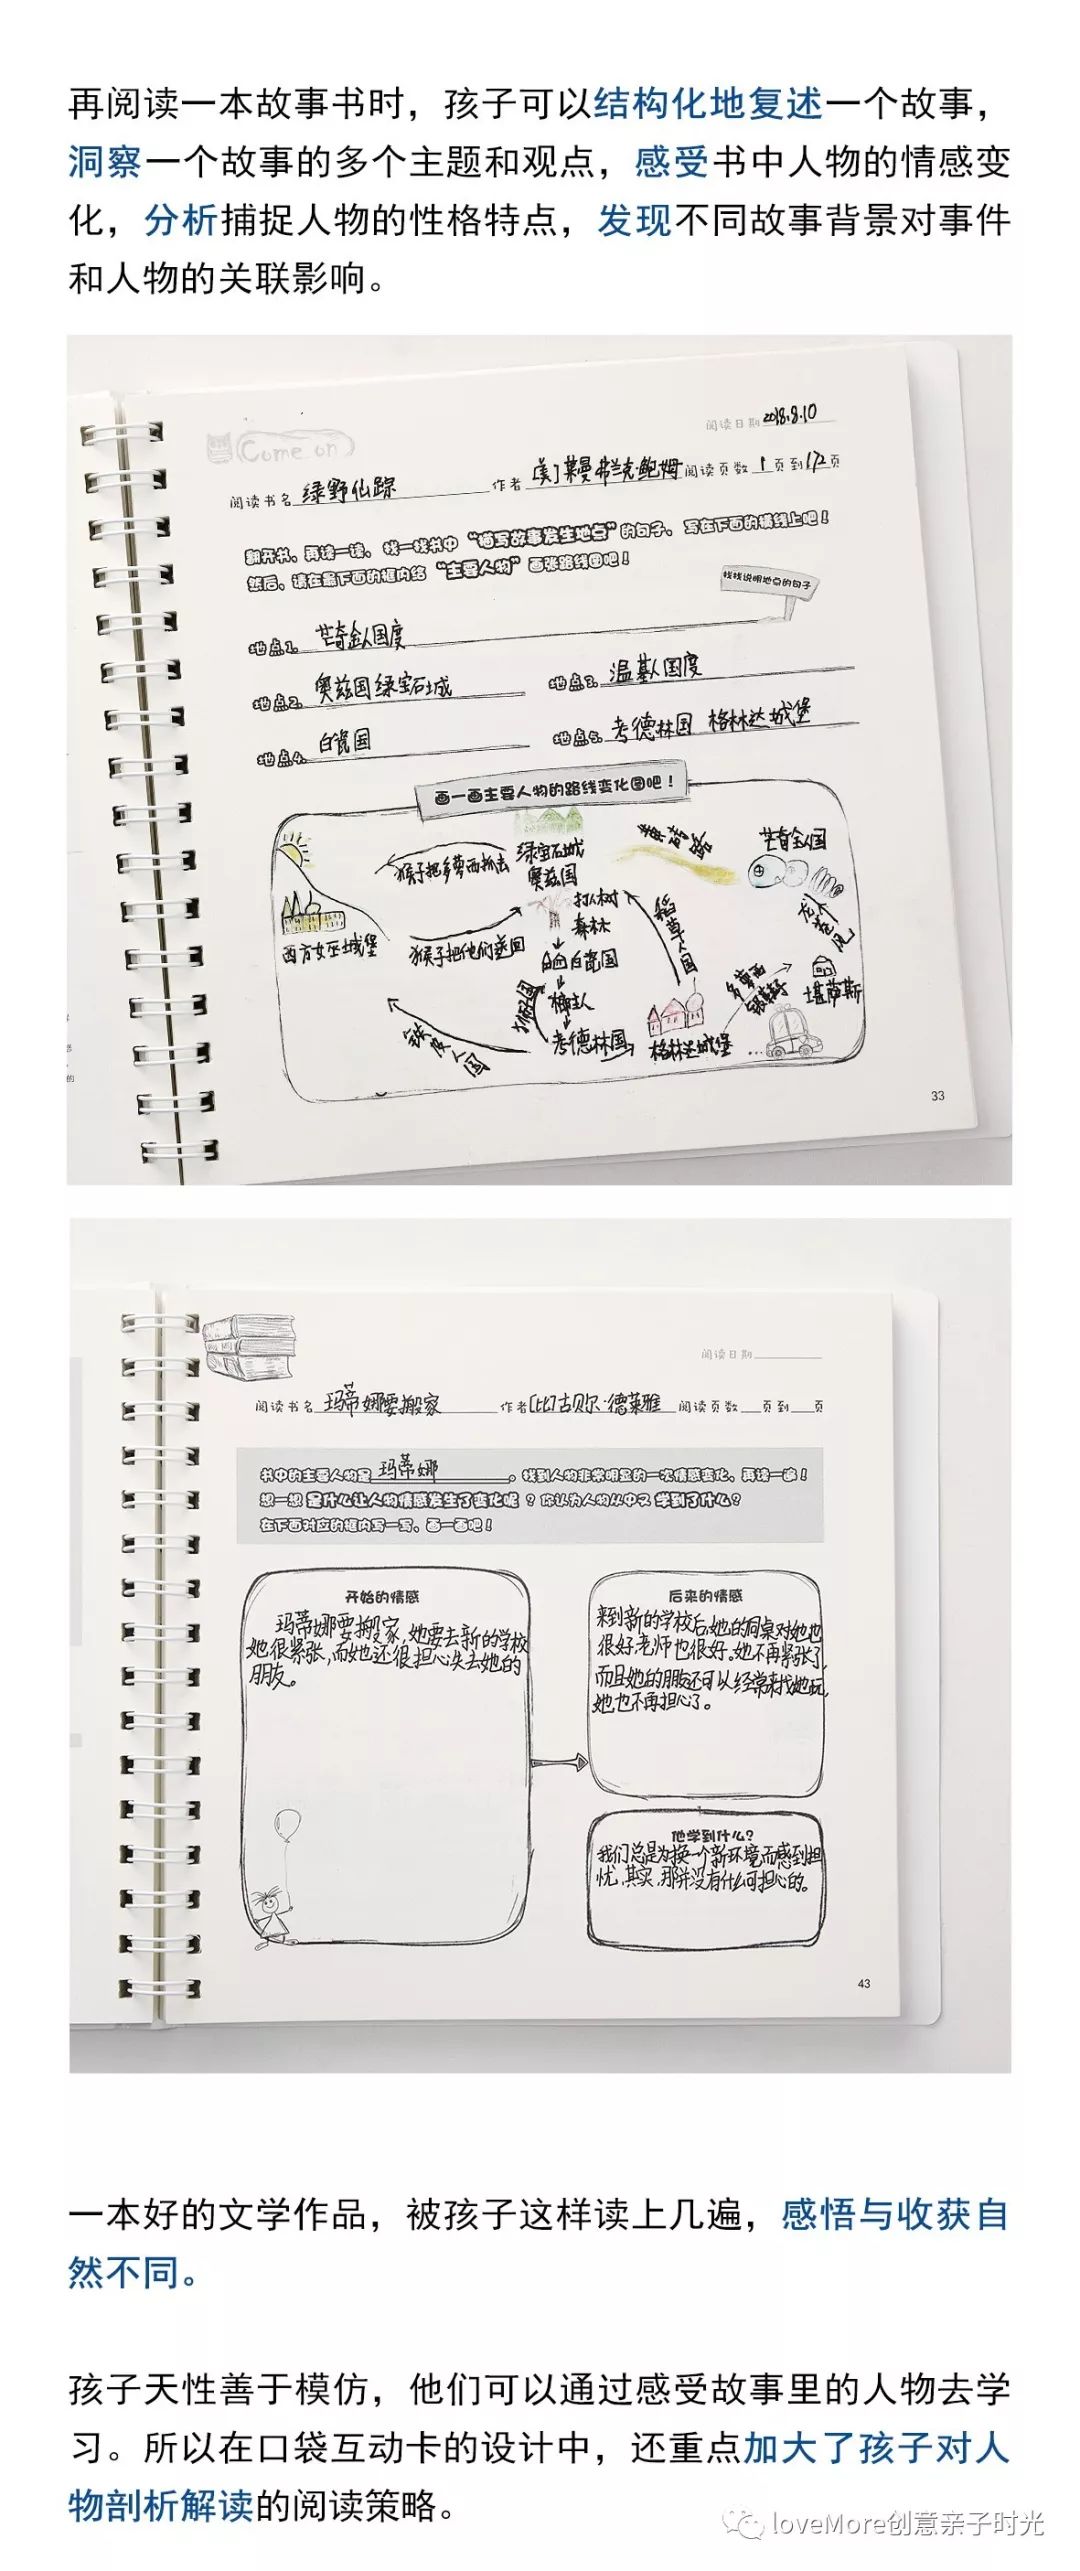 再阅读一本故事书时，孩子可以结构化地复述一个故事，
洞察一个故事的多个主题和观点，感受书中人物的情感变
化，分析捕捉人物的性格特点，发现不同故事背景对事件
和人物的关联影响。
Come on
阅读日期 2018.8.10
阅读书名 绿野仙踪 作者 [美]莱曼·弗兰克·鲍姆 阅读页数 1 页到 172 页
翻开书、再读一读、找一找书中“描写故事发生地点”的句子、写在下面的横线上吧！
然后、请在最下面的框内给“主要人物”画张路线图吧！
找找说明地点的句子
地点1. 芒奇金人国度
地点2. 奥兹国绿宝石城 地点3. 温基人国度
地点4. 白瓷国 地点5. 考德林国 格林达城堡
画一画主要人物的路线变化图吧！
猴子把多萝西抓去
绿宝石城
奥兹国
芒奇金人国
西方女巫城堡
猴子把他们送回
打人树
森林
稻草人国
白瓷国
多萝西
银鞋子
堪萨斯
铁皮人国
考德林国
格林达城堡
33
阅读日期
阅读书名 玛蒂娜要搬家 作者 [比]吉贝尔·德莱雅 阅读页数 页到 页
书中的主要人物是 玛蒂娜 。找到人物非常明显的一次情感变化、再读一遍！
想一想 是什么让人物情感发生了变化呢？你认为人物从中又 学到了什么？
在下面对应的框内写一写、画一画吧！
开始的情感
玛蒂娜要搬家，她要去新的学校
她很紧张，而她还很担心失去她的
朋友。
后来的情感
来到新的学校后，她的同桌对她也
很好，老师也很好。她不再紧张了，
而且她的朋友还可以经常来找她玩，
她也不再担心了。
他学到什么？
我们总是为换一个新环境而感到担
忧，其实，那并没有什么可担心的。
43
一本好的文学作品，被孩子这样读上几遍，感悟与收获自
然不同。
孩子天性善于模仿，他们可以通过感受故事里的人物去学
习。所以在口袋互动卡的设计中，还重点加大了孩子对人
物剖析解读的阅读策略。
loveMore创意亲子时光